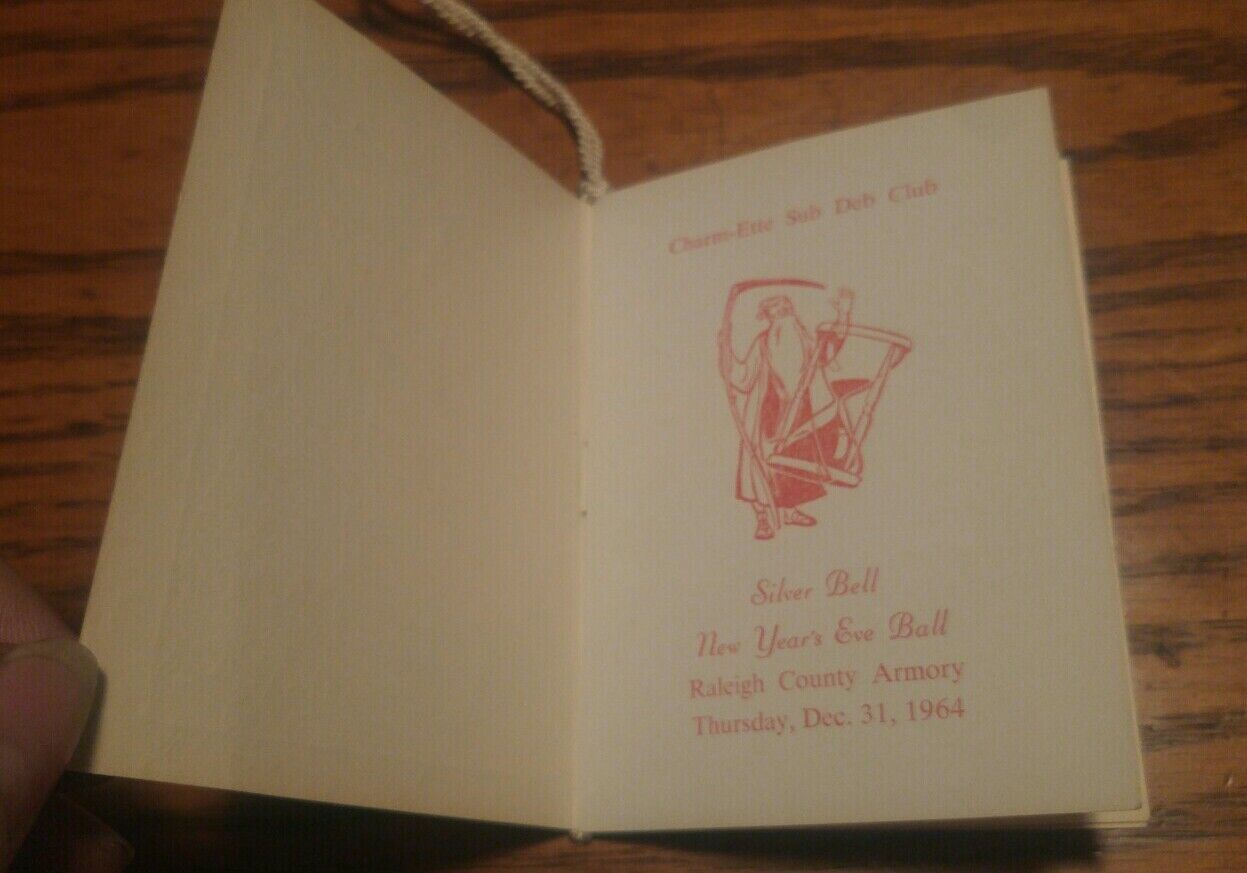 Charm-Ette Sub Deb Club
Silver Bell
New Year's Eve Ball
Raleigh County Armory
Thursday, Dec. 31, 1964